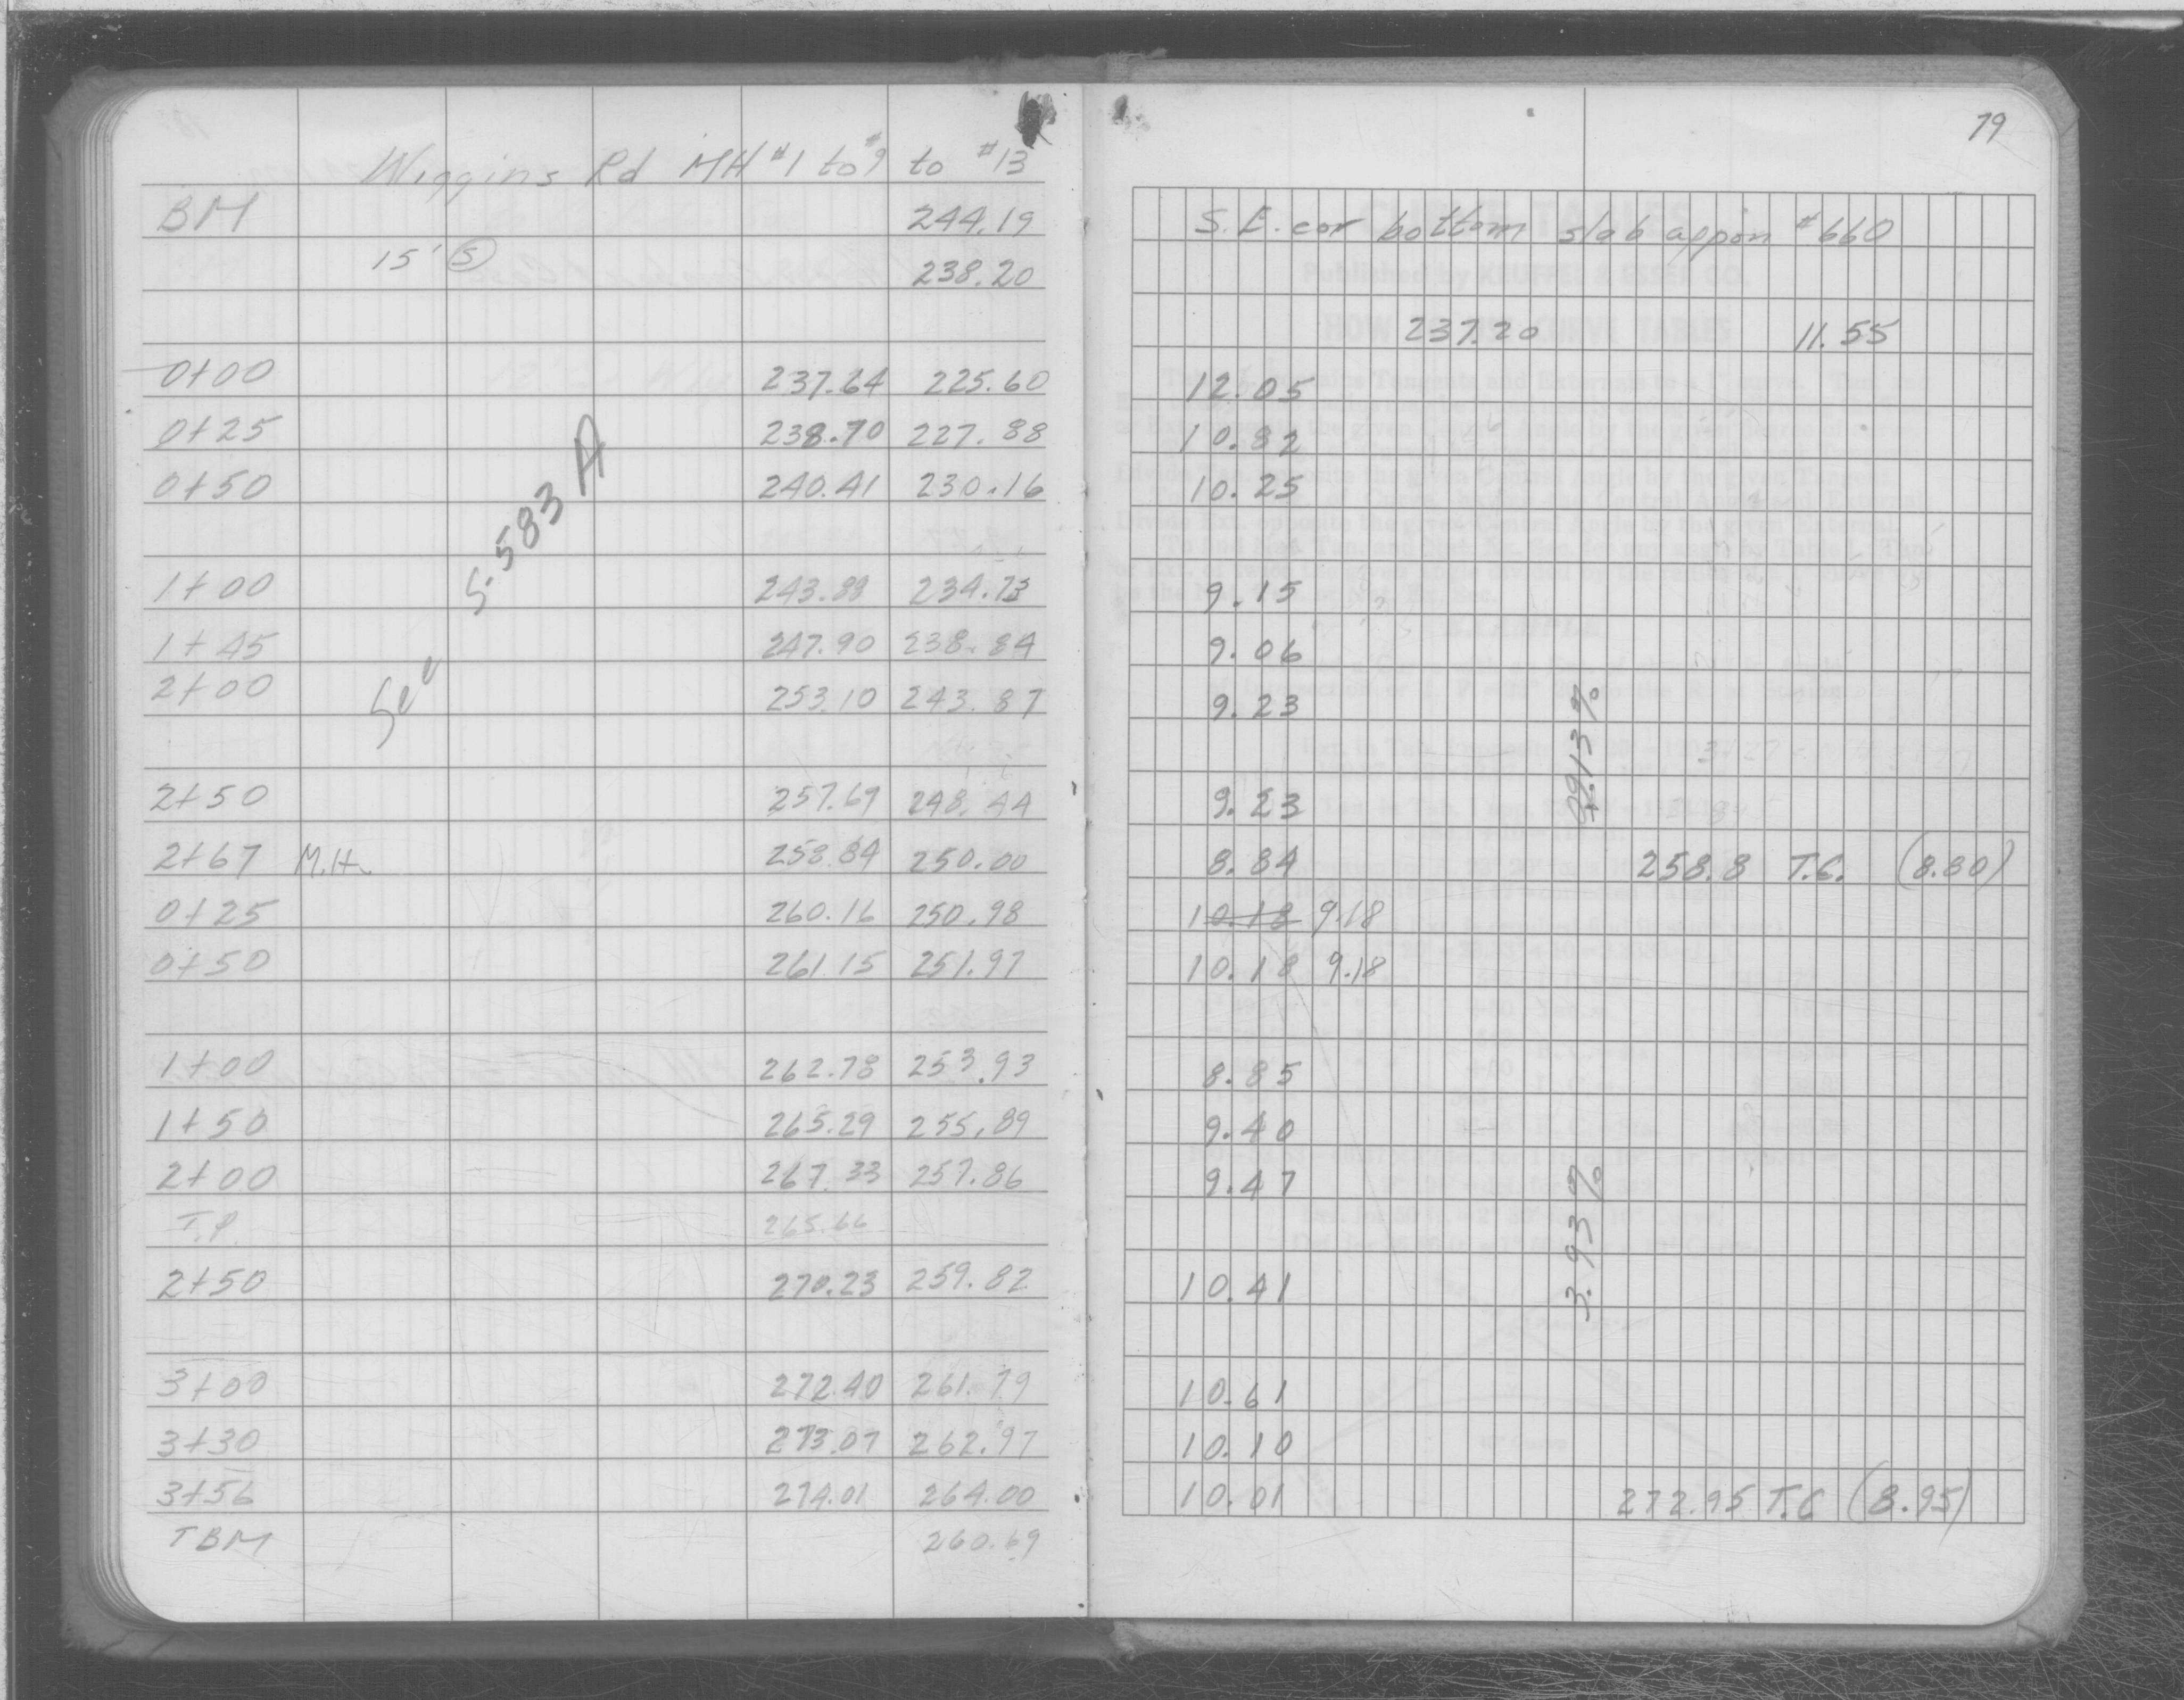 79
Wiggins Rd MH #1 to #9 to #13
BM 244.19 S.E. cor bottom slab appon #660
15' S 238.20
237.20 11.55
0+00 237.64 225.60 12.05
0+25 238.70 227.88 10.82
0+50 240.41 230.16 10.25
See S-583 A
1+00 243.88 234.73 9.15
1+45 247.90 238.84 9.06
2+00 253.10 243.87 9.23
9.13%
2+50 257.69 248.44 9.23
2+67 M.H. 258.84 250.00 8.84 258.8 T.C. (8.80)
0+25 260.16 250.98 10.18 9.18
0+50 261.15 251.97 10.18 9.18
1+00 262.78 253.93 8.85
1+50 265.29 255.89 9.40
2+00 267.33 257.86 9.47
T.P. 265.66
3.93%
2+50 270.23 259.82 10.41
3+00 272.40 261.79 10.61
3+30 273.07 262.97 10.10
3+56 274.01 264.00 10.01 272.95 T.C (8.95)
TBM 260.69